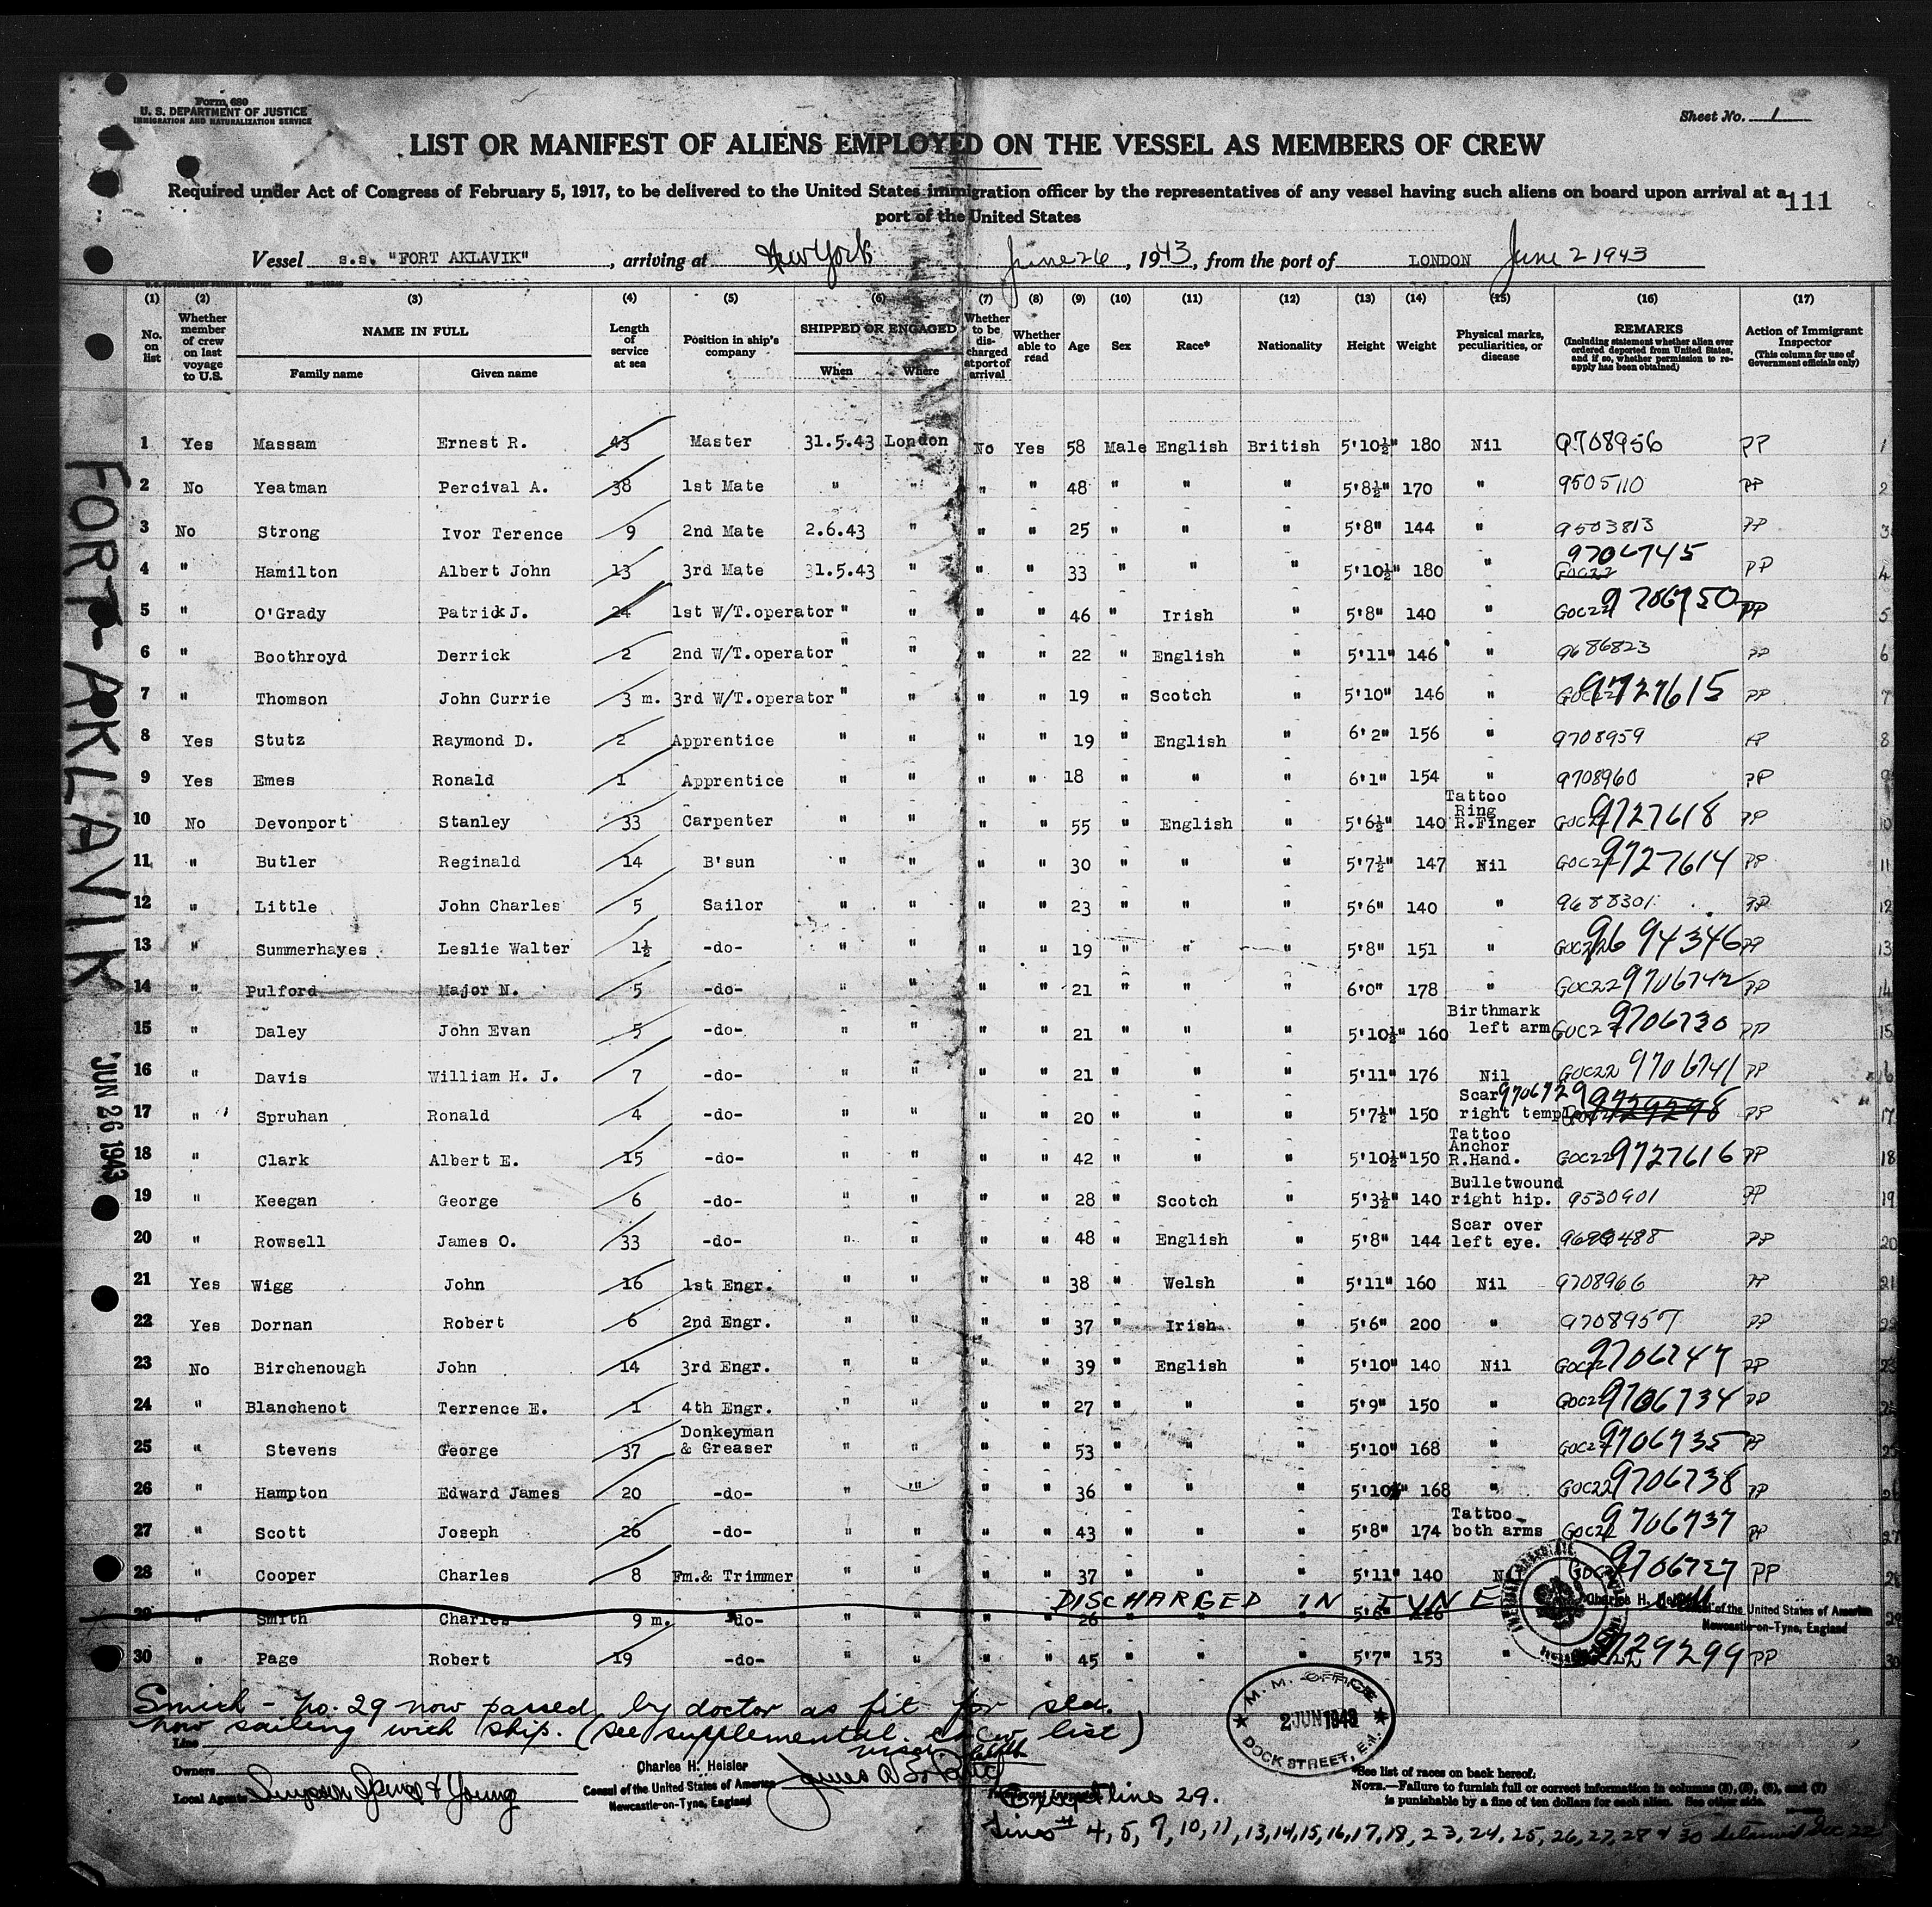 Form 680
U. S. DEPARTMENT OF JUSTICE
IMMIGRATION AND NATURALIZATION SERVICE
Sheet No. 1
LIST OR MANIFEST OF ALIENS EMPLOYED ON THE VESSEL AS MEMBERS OF CREW
Required under Act of Congress of February 5, 1917, to be delivered to the United States immigration officer by the representatives of any vessel having such aliens on board upon arrival at a
port of the United States
111
Vessel s.s. "FORT AKLAVIK", arriving at New York June 26, 1943, from the port of LONDON June 2 1943
(1) (2) (3) (4) (5) (6) (7) (8) (9) (10) (11) (12) (13) (14) (15) (16) (17)
No. on list
Whether member of crew on last voyage to U.S.
NAME IN FULL
Family name
Given name
Length of service at sea
Position in ship's company
SHIPPED OR ENGAGED
When
Where
Whether to be discharged at port of arrival
Whether able to read
Age
Sex
Race*
Nationality
Height
Weight
Physical marks, peculiarities, or disease
REMARKS
(Including statement whether alien ever ordered deported from United States, and if so, whether permission to reapply has been obtained)
Action of Immigrant Inspector
(This column for use of Government officials only)
1 Yes Massam Ernest R. 43 Master 31.5.43 London No Yes 58 Male English British 5'10½" 180 Nil 9708956 PP 1
2 No Yeatman Percival A. 38 1st Mate " " " " 48 " " " 5'8½" 170 " 9505110 PP 2
3 No Strong Ivor Terence 9 2nd Mate 2.6.43 " " " 25 " " " 5'8" 144 " 9503813 PP 3
4 " Hamilton Albert John 13 3rd Mate 31.5.43 " " " 33 " " " 5'10½" 180 " GOC22 9706745 PP 4
5 " O'Grady Patrick J. 24 1st W/T.operator " " " " 46 " Irish " 5'8" 140 " GOC22 9706750 PP 5
6 " Boothroyd Derrick 2 2nd W/T.operator " " " " 22 " English " 5'11" 146 " 9686823 PP 6
7 " Thomson John Currie 3 m. 3rd W/T.operator " " " " 19 " Scotch " 5'10" 146 " GOC22 9727615 PP 7
8 Yes Stutz Raymond D. 2 Apprentice " " " " 19 " English " 6'2" 156 " 9708959 PP 8
9 Yes Emes Ronald 1 Apprentice " " " " 18 " " " 6'1" 154 " 9708960 PP 9
10 No Devonport Stanley 33 Carpenter " " " " 55 " English " 5'6½" 140 Tattoo Ring R.Finger GOC22 9727618 PP 10
11 " Butler Reginald 14 B'sun " " " " 30 " " " 5'7½" 147 Nil GOC22 9727614 PP 11
12 " Little John Charles 5 Sailor " " " " 23 " " " 5'6" 140 " 9688301 PP 12
13 " Summerhayes Leslie Walter 1½ -do- " " " " 19 " " " 5'8" 151 " GOC22 9694346 PP 13
14 " Pulford Major N. 5 -do- " " " " 21 " " " 6'0" 178 " GOC22 9706742 PP 14
15 " Daley John Evan 5 -do- " " " " 21 " " " 5'10½" 160 Birthmark left arm GOC22 9706730 PP 15
16 " Davis William H. J. 7 -do- " " " " 21 " " " 5'11" 176 Nil GOC22 9706741 PP 16
17 " Spruhan Ronald 4 -do- " " " " 20 " " " 5'7½" 150 Scar right temple 9706729 PP 17
18 " Clark Albert E. 15 -do- " " " " 42 " " " 5'10½" 150 Tattoo Anchor R.Hand. GOC22 9727616 PP 18
19 " Keegan George 6 -do- " " " " 28 " Scotch " 5'3½" 140 Bulletwound right hip. 9530901 PP 19
20 " Rowsell James O. 33 -do- " " " " 48 " English " 5'8" 144 Scar over left eye. PP 20
21 Yes Wigg John 16 1st Engr. " " " " 38 " Welsh " 5'11" 160 Nil 9708966 PP 21
22 Yes Dornan Robert 6 2nd Engr. " " " " 37 " Irish " 5'6" 200 " 9708957 PP 22
23 No Birchenough John 14 3rd Engr. " " " " 39 " English " 5'10" 140 Nil GOC22 9706747 PP 23
24 " Blanchenot Terrence E. 1 4th Engr. " " " " 27 " " " 5'9" 150 " GOC22 9706734 PP 24
25 " Stevens George 37 Donkeyman & Greaser " " " " 53 " " " 5'10" 168 " GOC22 9706735 PP 25
26 " Hampton Edward James 20 -do- " " " " 36 " " " 5'10" 168 " GOC22 9706738 PP 26
27 " Scott Joseph 26 -do- " " " " 43 " " " 5'8" 174 Tattoo both arms GOC22 9706737 PP 27
28 " Cooper Charles 8 Fm.& Trimmer " " " " 37 " " " 5'11" 140 Nil GOC22 9706727 PP 28
29 " Smith Charles 9 m. -do- " " " " 26 " " " 5'6" DISCHARGED IN TYNE 29
Charles H. Heisler
Consul of the United States of America
Newcastle-on-Tyne, England
30 " Page Robert 19 -do- " " " " 45 " " " 5'7" 153 " 9729299 PP 30
Smith - No. 29 now passed by doctor as fit for sea.
now sailing with ship. (see supplemental crew list)
Line
Owners
Local Agents Simpson Spence & Young
Charles H. Heisler
Consul of the United States of America
Newcastle-on-Tyne, England
M. M. OFFICE
2 JUN 1943
DOCK STREET, E.1.
Except line 29.
Lines 4, 5, 7, 10, 11, 13, 14, 15, 16, 17, 18, 23, 24, 25, 26, 27, 28 & 30 detained GOC 22
*See list of races on back hereof.
NOTE.—Failure to furnish full or correct information in columns (2), (5), (6), and (7)
is punishable by a fine of ten dollars for each alien. See other side.
FORT-AKLAVIK
JUN 26 1943